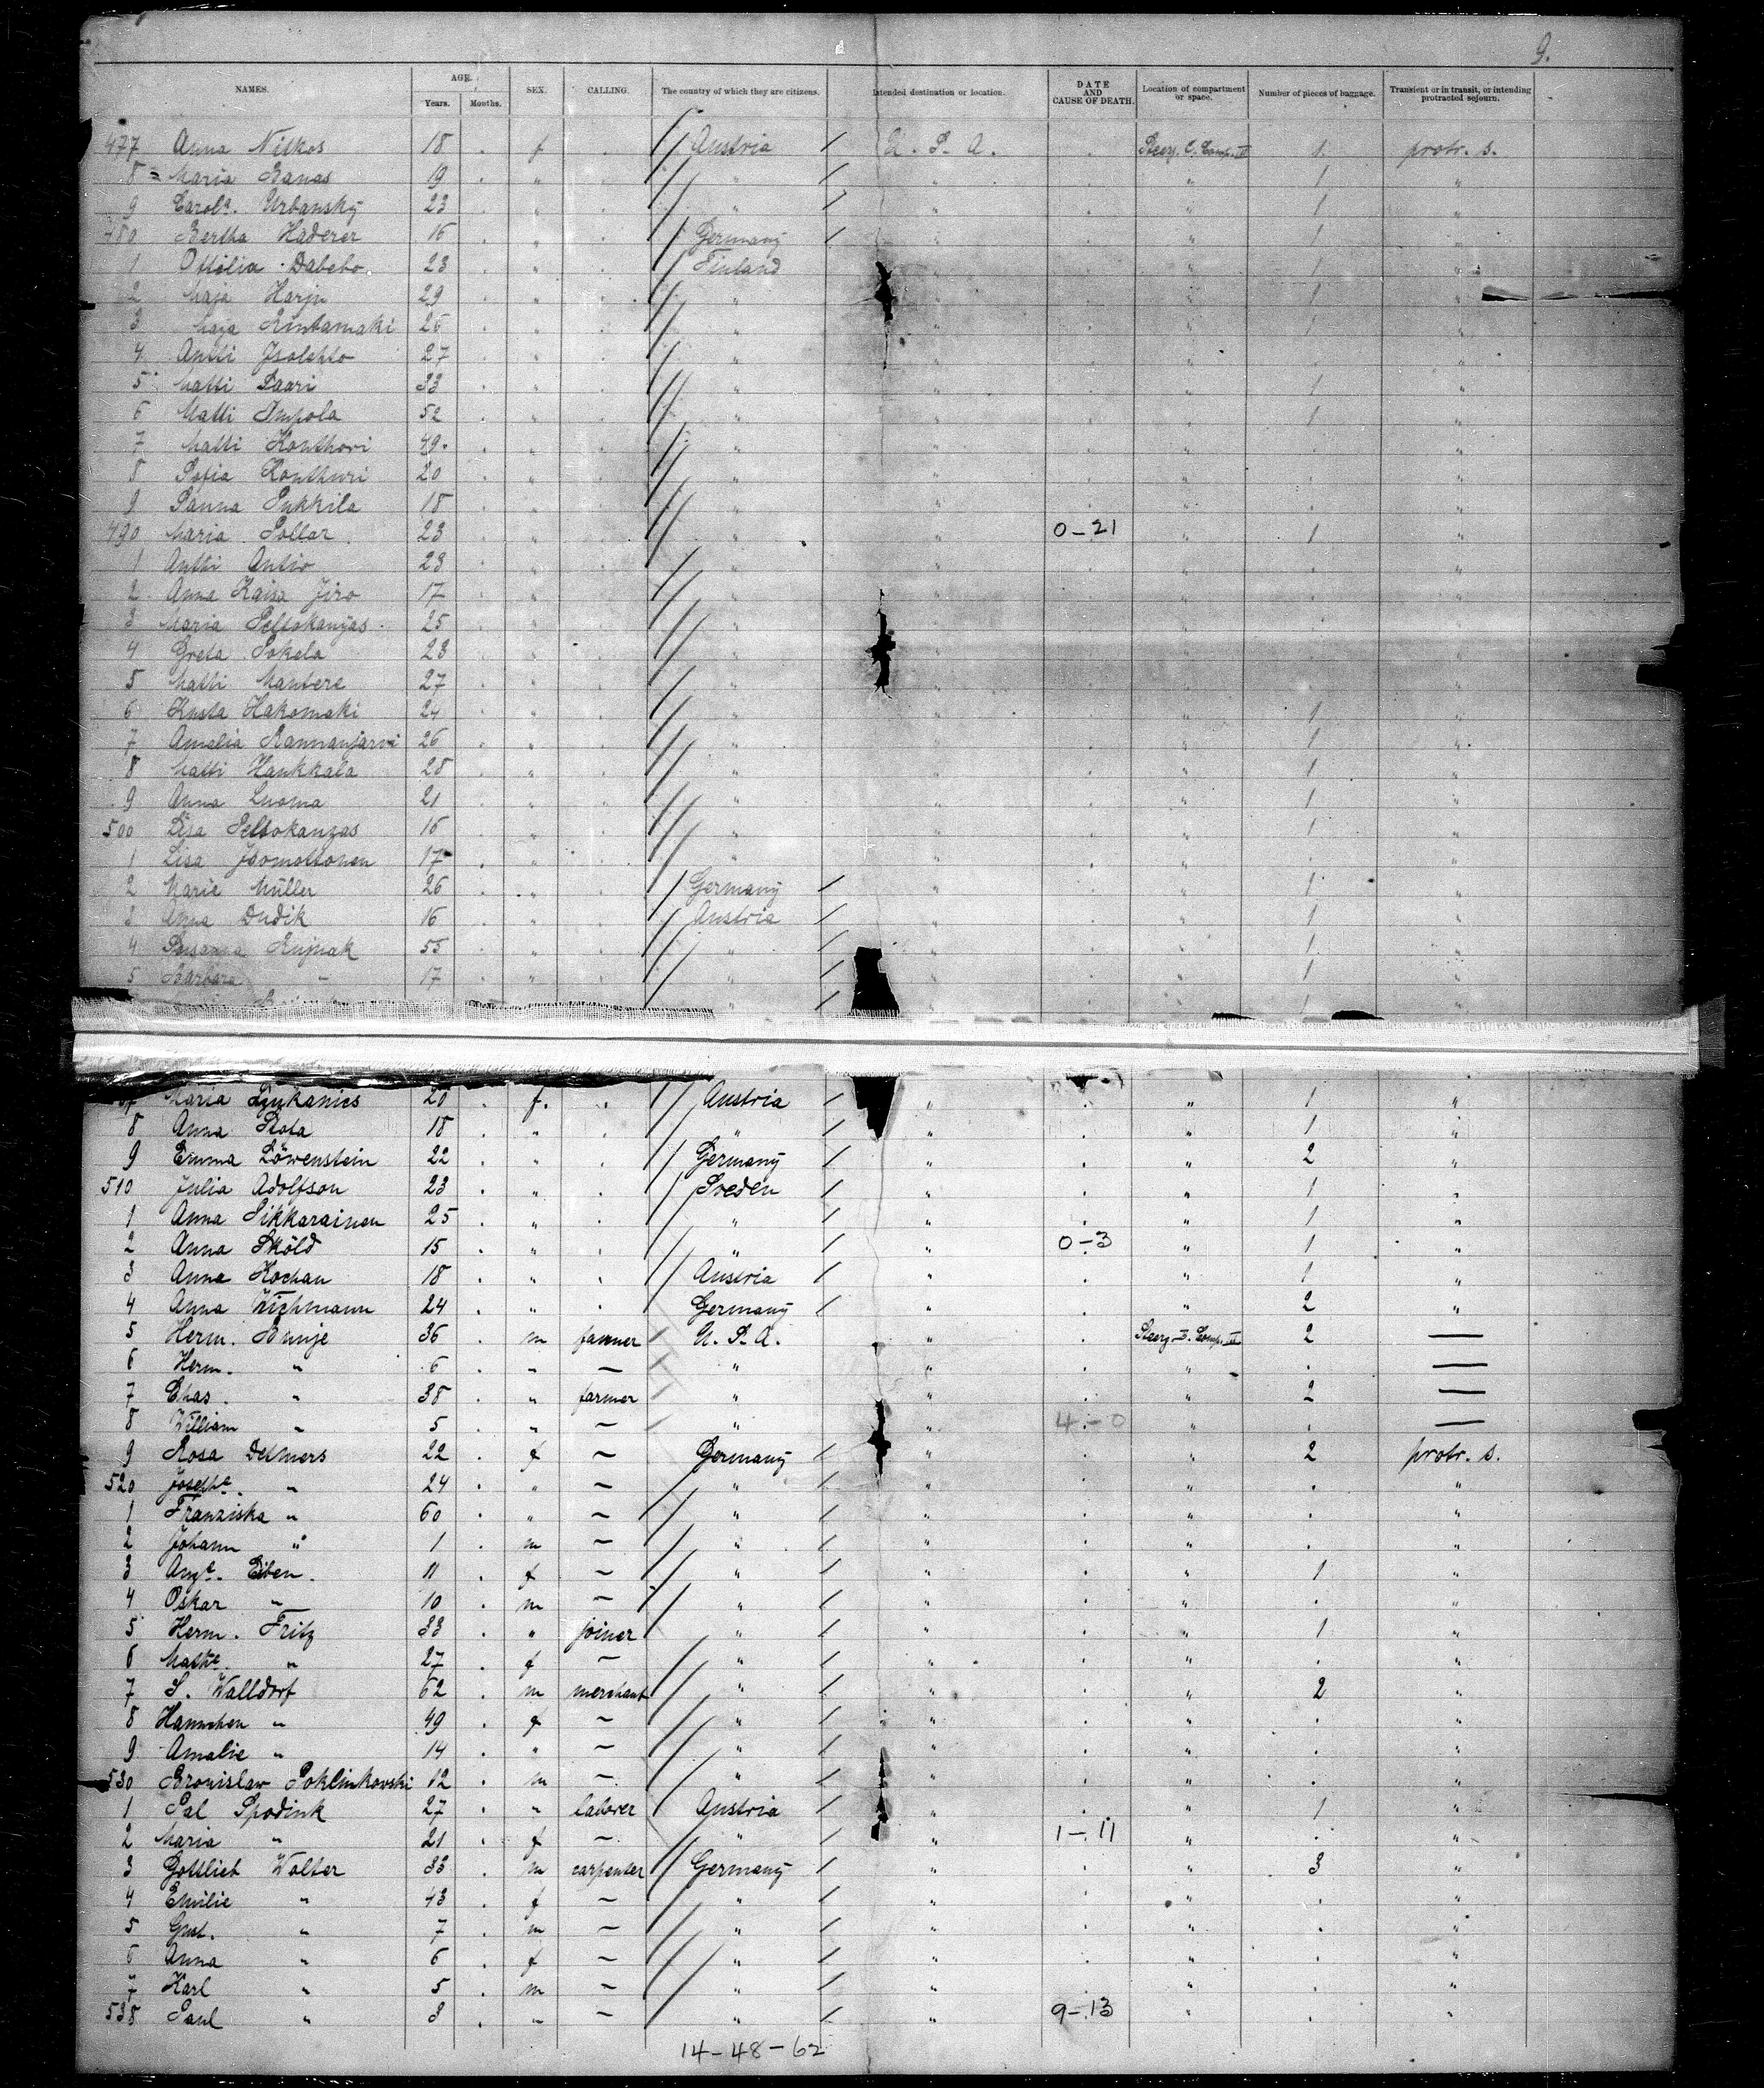 9.
NAMES. AGE. Years. Months. SEX. CALLING. The country of which they are citizens. Intended destination or location. DATE AND CAUSE OF DEATH. Location of compartment or space. Number of pieces of baggage. Transient or in transit, or intending protracted sojourn.
477 Anna 18 f Austria U. S. A. Steerg. C. Comp. IV 1 protr. s.
8 Maria Banas 19 " " " " 1 "
9 Carole. Urbansky 23 " " " " 1 "
480 Bertha Haderer 16 " Germany " " 1 "
1 Ottilia 23 " Finland " " 1 "
2 Maja Harju 29 " " " " 1 "
3 Maja Rintamaki 26 " " " " 1 "
4 Antti Isolehto 27 " " " " . "
5 Matti Saari 33 " " " " 1 "
6 Matti Impola 52 " " " " 1 "
7 Matti Konthori 49 " " " " . "
8 Sofia Konthuri 20 " " " " . "
9 Sanna 18 " " " " . "
490 Maria 23 " " " 0-21 " 1 "
1 Antti Antio 23 " " " " . "
2 Anna Kaisa 17 " " " " . "
3 Maria Peltokangas 25 " " " " . "
4 Greta 23 " " " " . "
5 Matti Mantere 27 " " " " . "
6 Kusta Hakomaki 24 " " " " 1 "
7 Amalia Rannanjarvi 26 " " " " 1 "
8 Matti Haukkala 28 " " " " 1 "
9 Anna Luoma 21 " " " " 1 "
500 Lisa Peltokangas 16 " " " " 1 "
1 Lisa 17 " " " " . "
2 Marie Müller 26 " Germany " " 1 "
3 Anna Dudik 16 " Austria " " 1 "
4 Susanna 55 " " " " 1 "
5 Barbara " 17 " " " " 1 "
Maria 20 f. Austria " " 1 "
8 Anna 18 " " " " 1 "
9 Emma Löwenstein 22 " Germany " " 2 "
510 Julia Adolfson 23 " Sveden " " 1 "
1 Anna Sikkarainen 25 " " " " 1 "
2 Anna Sköld 15 " " " 0-3 " 1 "
3 Anna Kochan 18 " Austria " " 1 "
4 Anna Wichmann 24 " Germany " " 2 "
5 Herm. Bunje 36 m farmer U. S. A. " Steerg. I. Comp. II 2 —
6 Herm. " 6 " — " " " . —
7 Chas. " 38 " farmer " " " 2 —
8 William " 5 " — " " 4-0 " . —
9 Rosa Detmers 22 f — Germany " " 2 protr. s.
520 Josephe. " 24 " — " " " . "
1 Franziska " 60 " — " " " . "
2 Johann " 1 m — " " " . "
3 Auge. Eiben 11 f — " " " 1 "
4 Oskar " 10 m — " " " . "
5 Herm. Fritz 33 " joiner " " " 1 "
6 Mathe. " 27 f — " " " . "
7 S. Walldorf 62 m merchant " " " 2 "
8 Hannchen " 49 f — " " " . "
9 Amalie " 14 " — " " " . "
530 Bronislaw Poklinkowski 12 m — " " " . "
1 Pal Spodink 27 " laborer Austria " " 1 "
2 Maria " 21 f — " " 1-11 " . "
3 Gottlieb Walter 33 m carpenter Germany " " 3 "
4 Emilie " 43 f — " " " . "
5 Gust. " 7 m — " " " . "
6 Anna " 6 f — " " " . "
7 Karl " 5 m — " " " . "
538 Paul " 3 " — " " 9-13 " . "
14-48-62